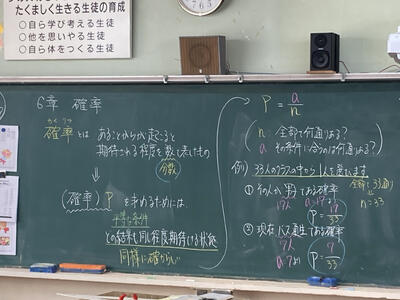 たくましく生きる生徒の育成
○自ら学び考える生徒
○他を思いやる生徒
○自ら体をつくる生徒
6章 確率
かくりつ
確率とは あることがらが起こると
期待される程度を数で表したもの
(分数)
(確率) P を求めるためには、
平等な条件
どの結果も同じ程度期待している状態
同様に確からしい
P = a/n
n: 全部で何通りある?
a: その条件に合うのは何通りある?
例) 33人のクラスの中から1人を選びます
全部で33通り
n=33
① その人が男である確率
17人 a=17
P=17/33
② 現在バス通生である確率
7人 a=7より
P=7/33